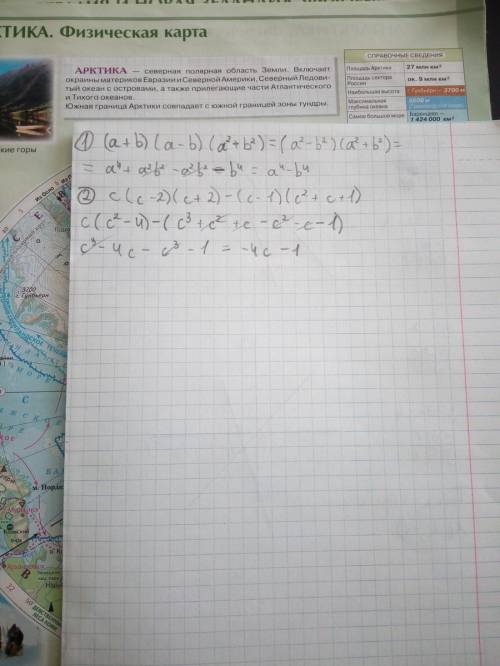 КТИКА. Физическая карта
АРКТИКА — северная полярная область Земли. Включает
окраины материков Евразии и Северной Америки, Северный Ледови-
тый океан с островами, а также прилегающие части Атлантического
и Тихого океанов.
Южная граница Арктики совпадает с южной границей зоны тундры.
СПРАВОЧНЫЕ СВЕДЕНИЯ
Площадь Арктики 27 млн км²
Площадь сектора России ок. 9 млн км²
Наибольшая высота г. Гунбьёрн 3700 м
Максимальная глубина океана
Самое большое море Баренцево 1 424 000 км²
кие горы
1) (a+b)(a-b)(a²+b²)=(a²-b²)(a²+b²)=
= a⁴+a²b²-a²b²-b⁴ = a⁴-b⁴
2) c(c-2)(c+2)-(c-1)(c²+c+1)
c(c²-4)-(c³+c²+c-c²-c-1)
c³-4c-c³-1 = -4c-1
3700
г. Гунбьёрн
м. Нордк